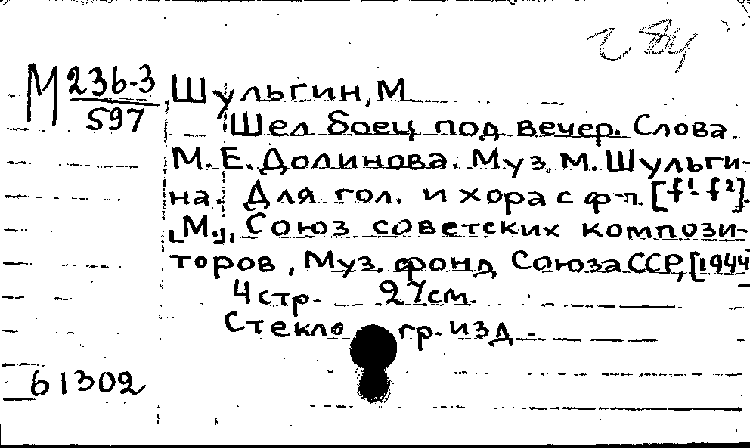 284
М 236-3
597
Шульгин, М
Шел боец под вечер. Слова
М. Е. Долинова. Муз. М. Шульги-
на. Для гол. и хора с ф-п. [f¹-f²].
[М.], Союз советских компози-
торов, Муз. фонд Союза ССР, [1944
4 стр. 27 см.
Стеклогр. изд.
61302